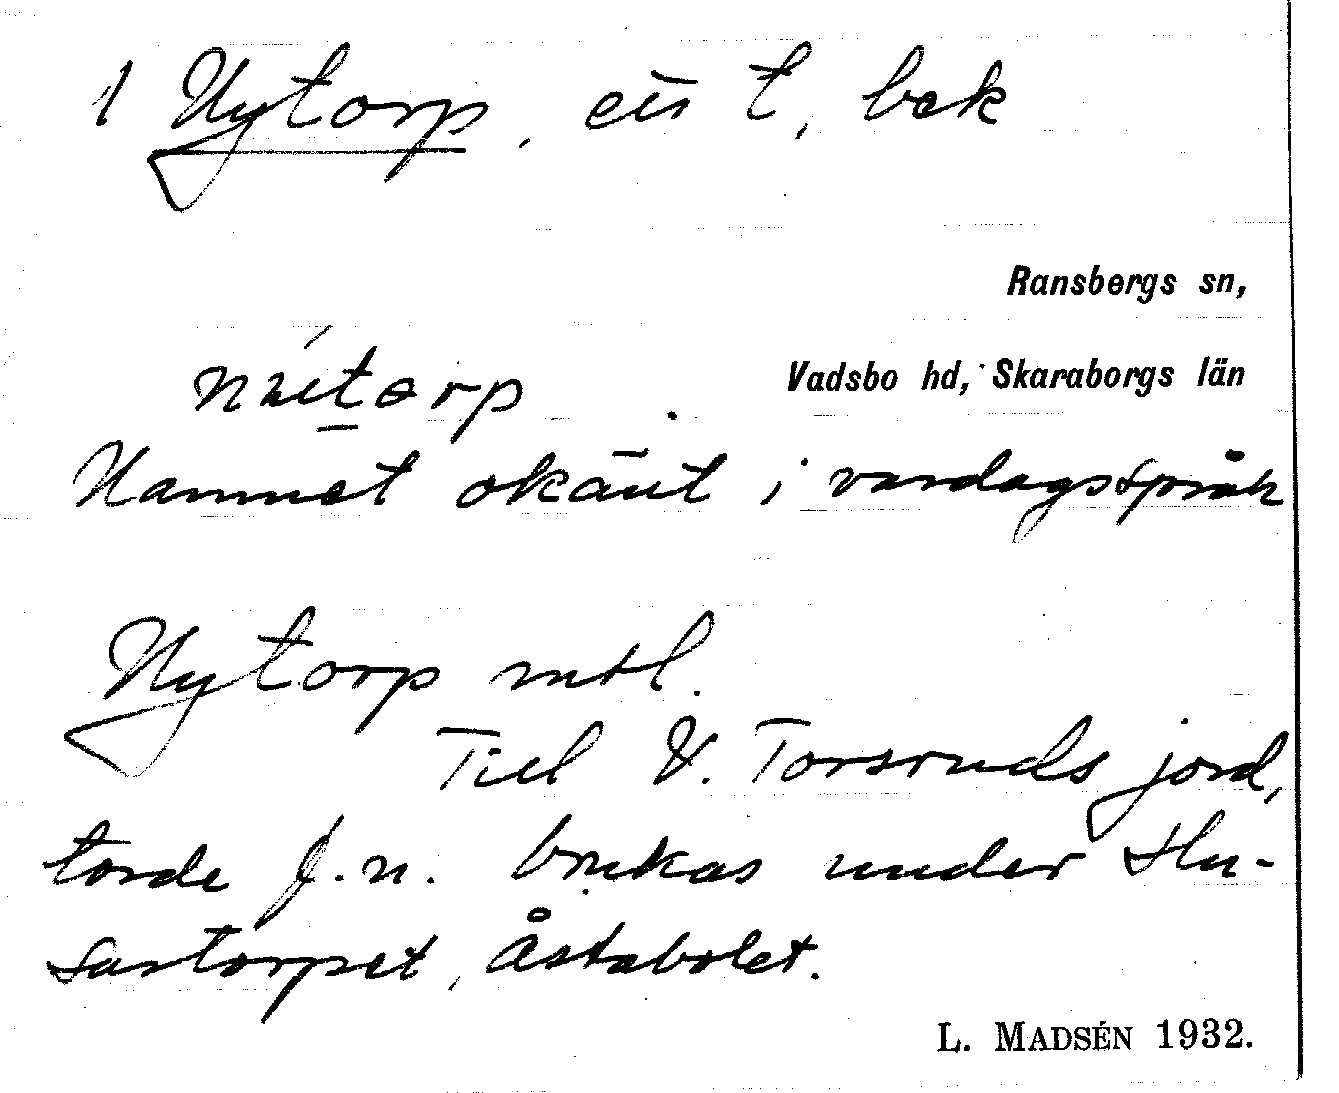 1 Nytorp, en t, bek
Ransbergs sn,
Vadsbo hd, Skaraborgs län
Namnet okänt i vardagsspråk
Nytorp mtl.
Till V. Torsruds jord,
torde f.n. brukas under Hu-
sartorpet, Åstabolet.
L. MADSÉN 1932.